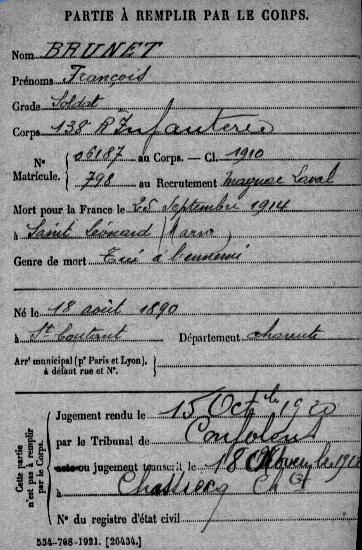 PARTIE À REMPLIR PAR LE CORPS.
Nom BRUNET
Prénoms François
Grade Soldat
Corps 138 R Infanterie
N° 06187 au Corps. — Cl. 1910
Matricule. 798 au Recrutement Magnac Laval
Mort pour la France le 25 septembre 1914
à Saint Léonard (Marne)
Genre de mort Tué à l'ennemi
Né le 18 août 1890
à St Coutant Département Charente
Arrt municipal (pr Paris et Lyon),
à défaut rue et N°.
Cette partie n'est pas à remplir par le Corps.
Jugement rendu le 15 Octobre 1920
par le Tribunal de Confolens
ou jugement transcrit le 18 Novembre
à Chassiecq Ch
N° du registre d'état civil
534-708-1921. [26434.]